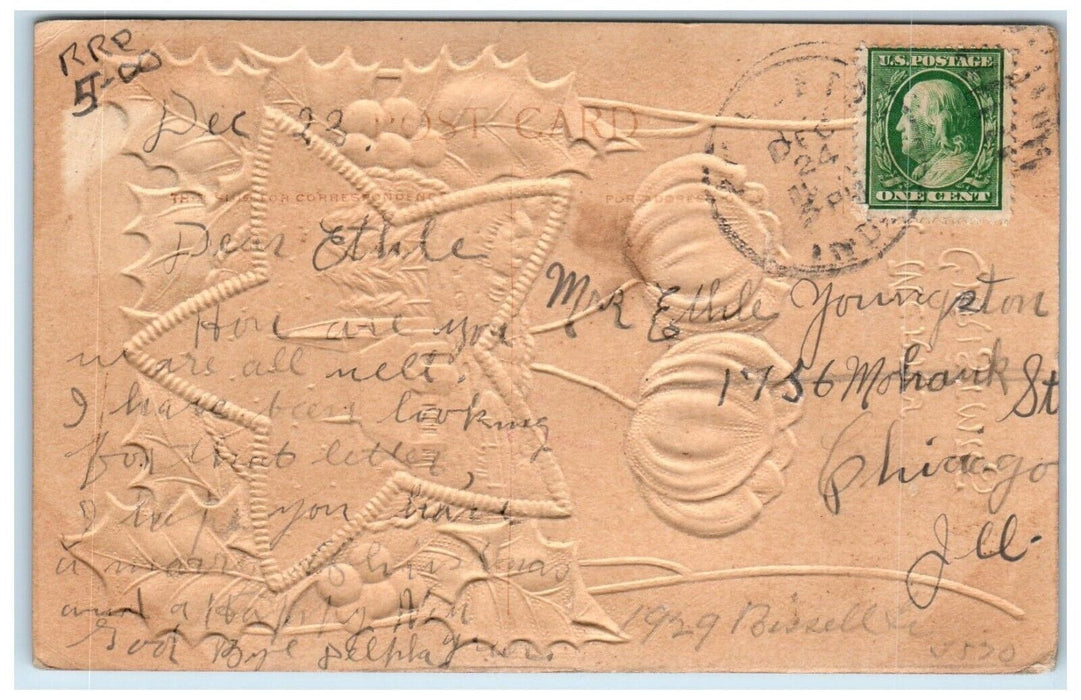 RRP
5-00
Dec 23.
POST CARD
THIS SIDE FOR CORRESPONDENCE
FOR ADDRESS
U.S. POSTAGE
ONE CENT
DEC
24
PM
IND
Dear Ethle
How are you
we are all well.
I have been looking
for that letter,
I hope you have
a marry Christmas
and a Happy New
God Bye
Ethle Youngston
1756 Mohawk St
Chicago
Ill.
1929 Bissell